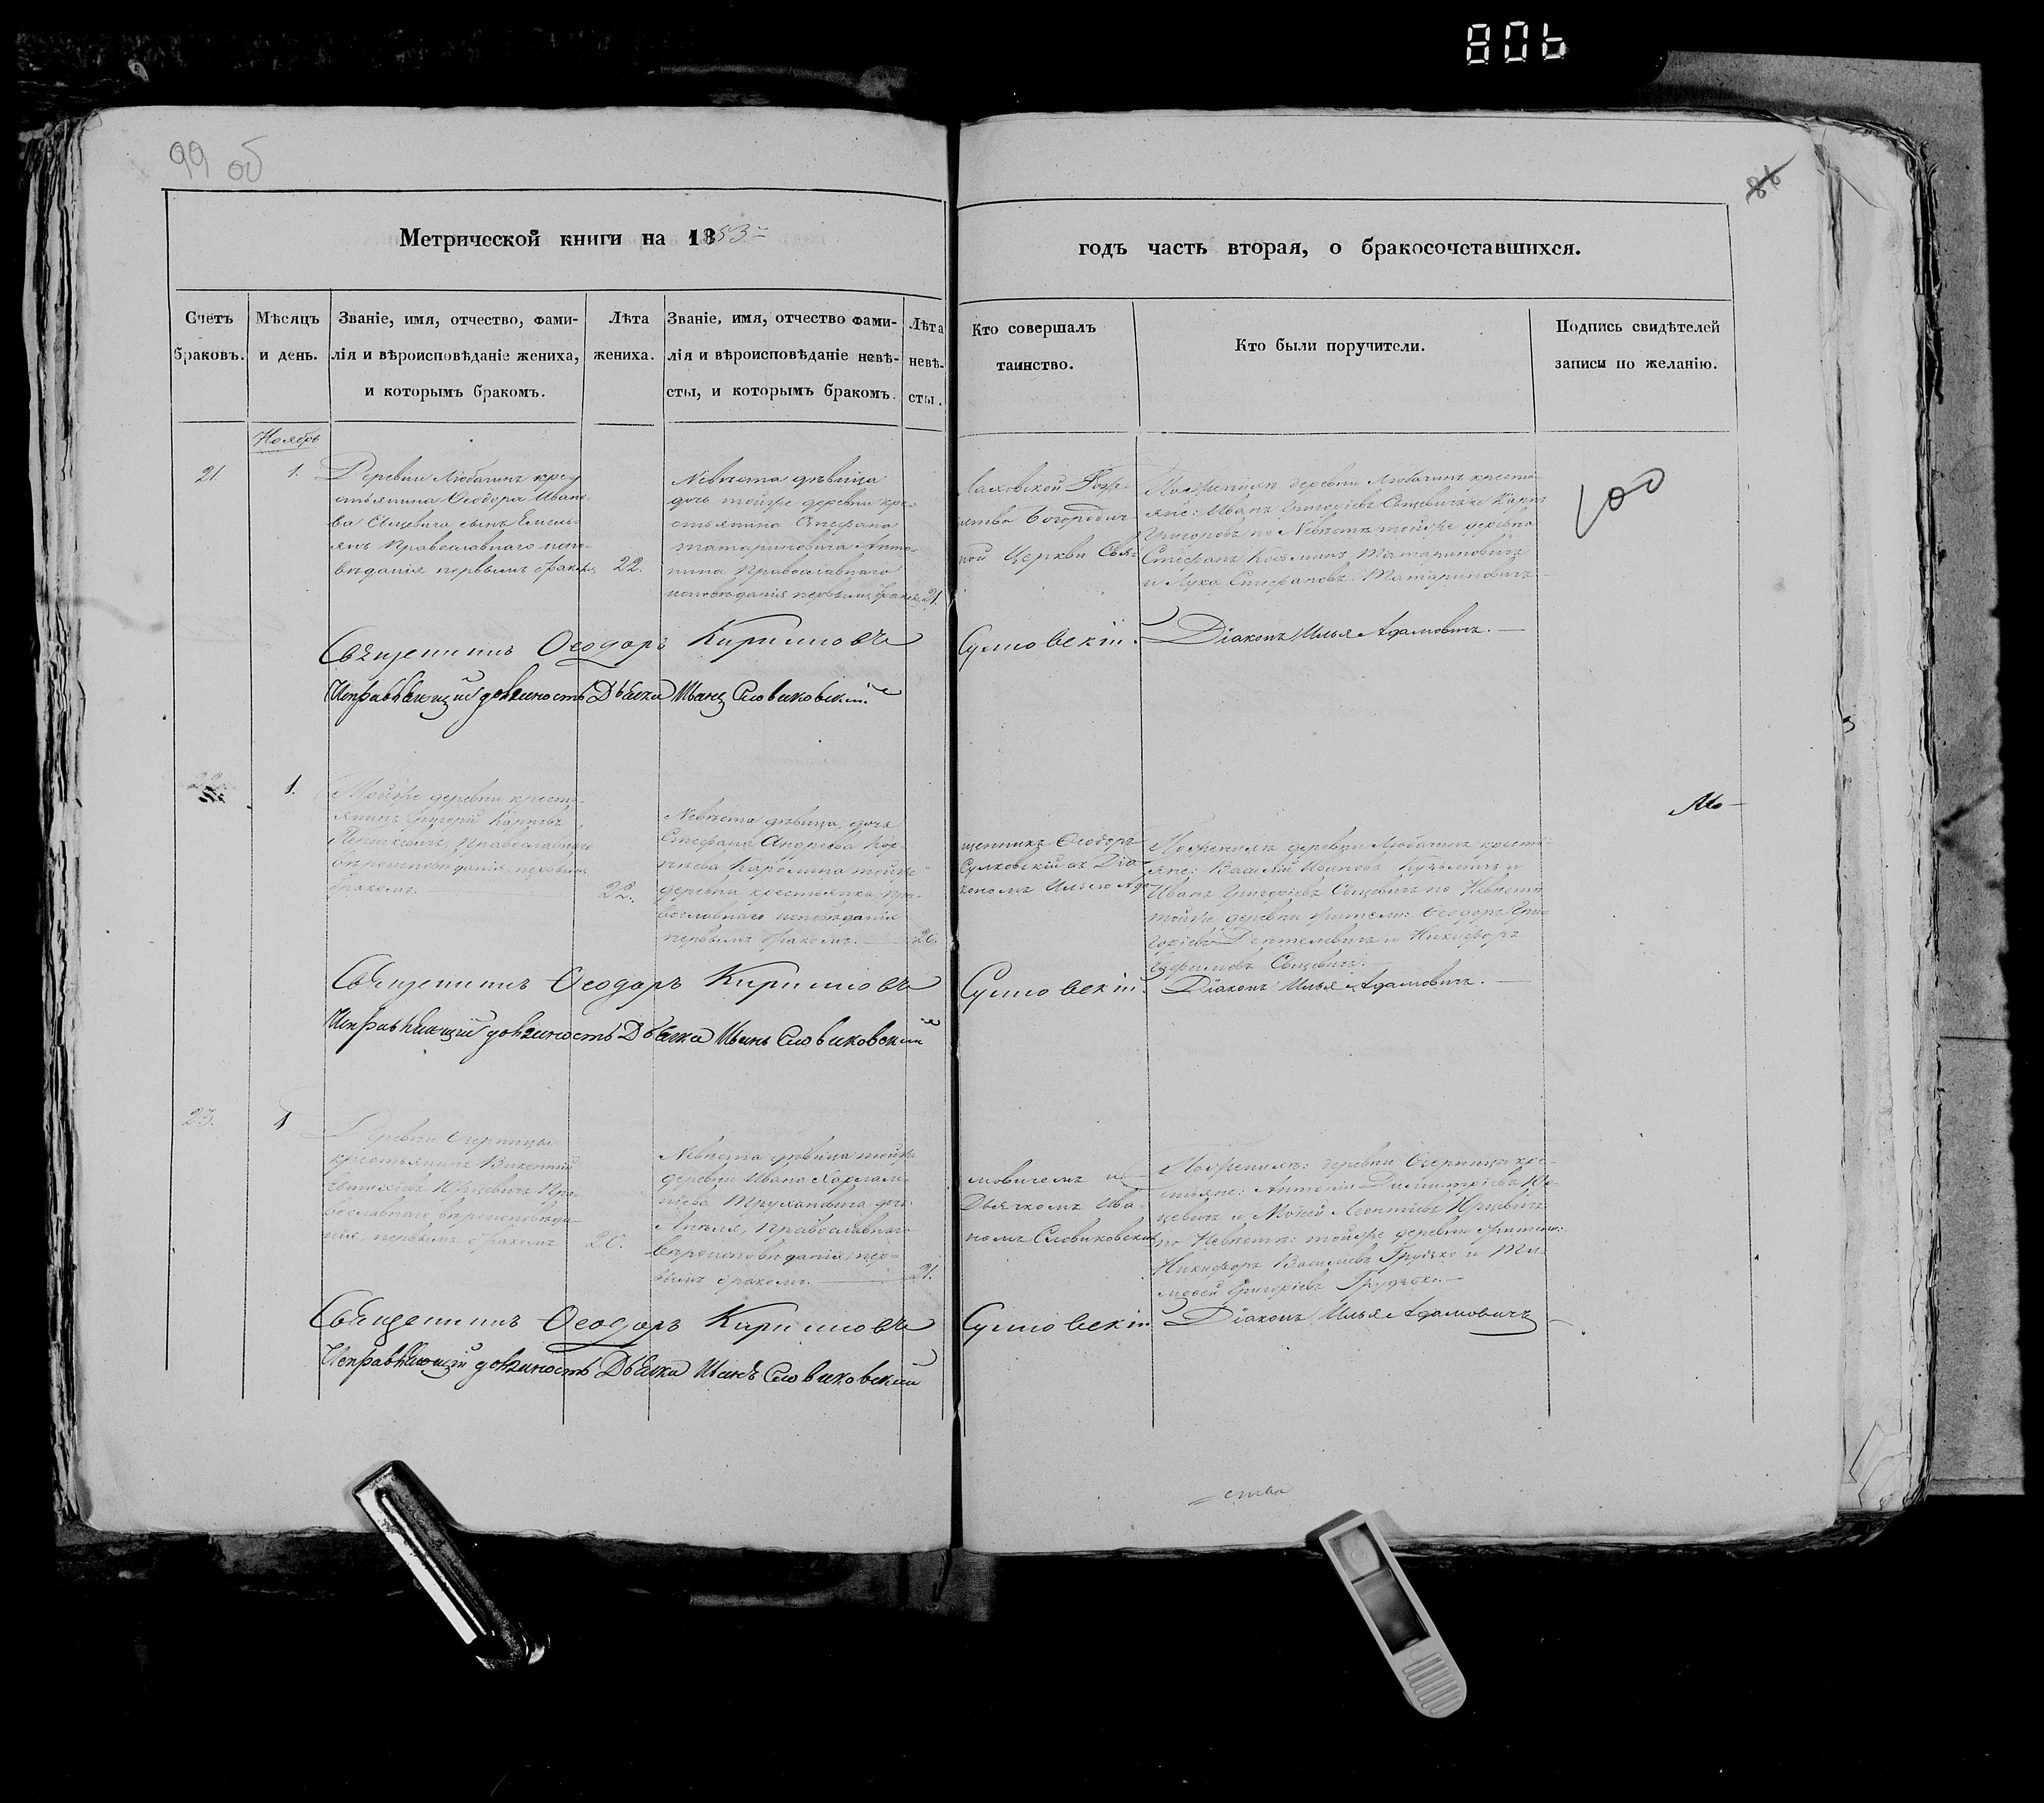 80b
99 об
88
Метрической книги на 1853й
годъ часть вторая, о бракосочетавшихся.
Счетъ браковъ.
Мѣсяцъ и день.
Званіе, имя, отчество, фами-
лія и вѣроисповѣданіе жениха,
и которымъ бракомъ.
Лѣта
жениха.
Званіе, имя, отчество фами-
лія и вѣроисповѣданіе невѣ-
сты, и которымъ бракомъ.
Лѣта
невѣ-
сты.
Кто совершалъ
таинство.
Кто были поручители.
Подпись свидѣтелей
записи по желанію.
100
Ноябрь
21
1.
Деревни Любачинъ крес-
тьянина Ѳеодора Ивано-
ва Сыцевича сынъ Емель-
янъ Православнаго испо-
вѣданія первымъ бракомъ
22.
Невѣста дѣвица
дочь тойже деревни кре-
стьянина Стефана
Татариновича Анто-
нина Православнаго
исповѣданія первымъ бракомъ
21.
Лаховской Рож-
ства Богородич-
ной Церкви Свя-
По Женихѣ деревни Любачинъ крестья-
яне: Иванъ Григорієвъ Сыцевичъ и Карпъ
Григоровъ по Невѣстѣ тойже деревни
Стефанъ Козьминъ Татариновичъ
и Лука Стефановъ Татариновичъ
Священникъ Ѳеодоръ Кирилловъ
Сулковскій.
Діаконъ Илья Адамовичъ.
Исправляющій должность Дьячка Иванъ Словиковскій
22.
1.
Тойже деревни кресть-
янинъ Григорій Карповъ
Православнаго
вѣроисповѣданія, первымъ
бракомъ.
22.
Невѣста дѣвица, дочь
Стефана Андреева
Каролина тойже
деревни крестьянка, Пра-
вославнаго исповѣданія
первымъ бракомъ.
20.
щенникъ Ѳеодоръ
Сулковскій съ Діа-
кономъ Ильею Ада-
По Женихѣ деревни Любачинъ крестья-
яне: Василій Ивановъ и
Иванъ Григорієвъ Сыцевичъ по Невѣстѣ
тойже деревни жители: Ѳеодоръ Гри-
горієвъ и Никифоръ
Сыцевичъ.
Мо-
Священникъ Ѳеодоръ Кирилловъ
Сулковскій.
Діаконъ Илья Адамовичъ.
Исправляющій должность Дьячка Иванъ Словиковскій
23.
1
Деревни Озерницы
крестьянинъ Викентій
Юрцевичъ Пра-
вославнаго вѣроисповѣда-
нія, первымъ бракомъ
20.
Невѣста дѣвица тойже
деревни Ивана Харлам-
піева Трухановича дочь
Анѣля, Православнаго
вѣроисповѣданія, пер-
вымъ бракомъ.
21.
мовичемъ и
Дьячкомъ Ива-
номъ Словиковскимъ
По Женихѣ: деревни Озерницы кре-
стьяне: Антоній Димитріевъ Юр-
цевичъ и Мойсей Леонтіевъ Юрцевичъ
по Невѣстѣ: тойже деревни жители:
Никифоръ Василіевъ Грудзко и Ти-
мофей Григорієвъ Грудзко.
Священникъ Ѳеодоръ Кирилловъ
Сулковскій
Діаконъ Илья Адамовичъ
Исправляющій должность Дьячка Иванъ Словиковскій
= ства